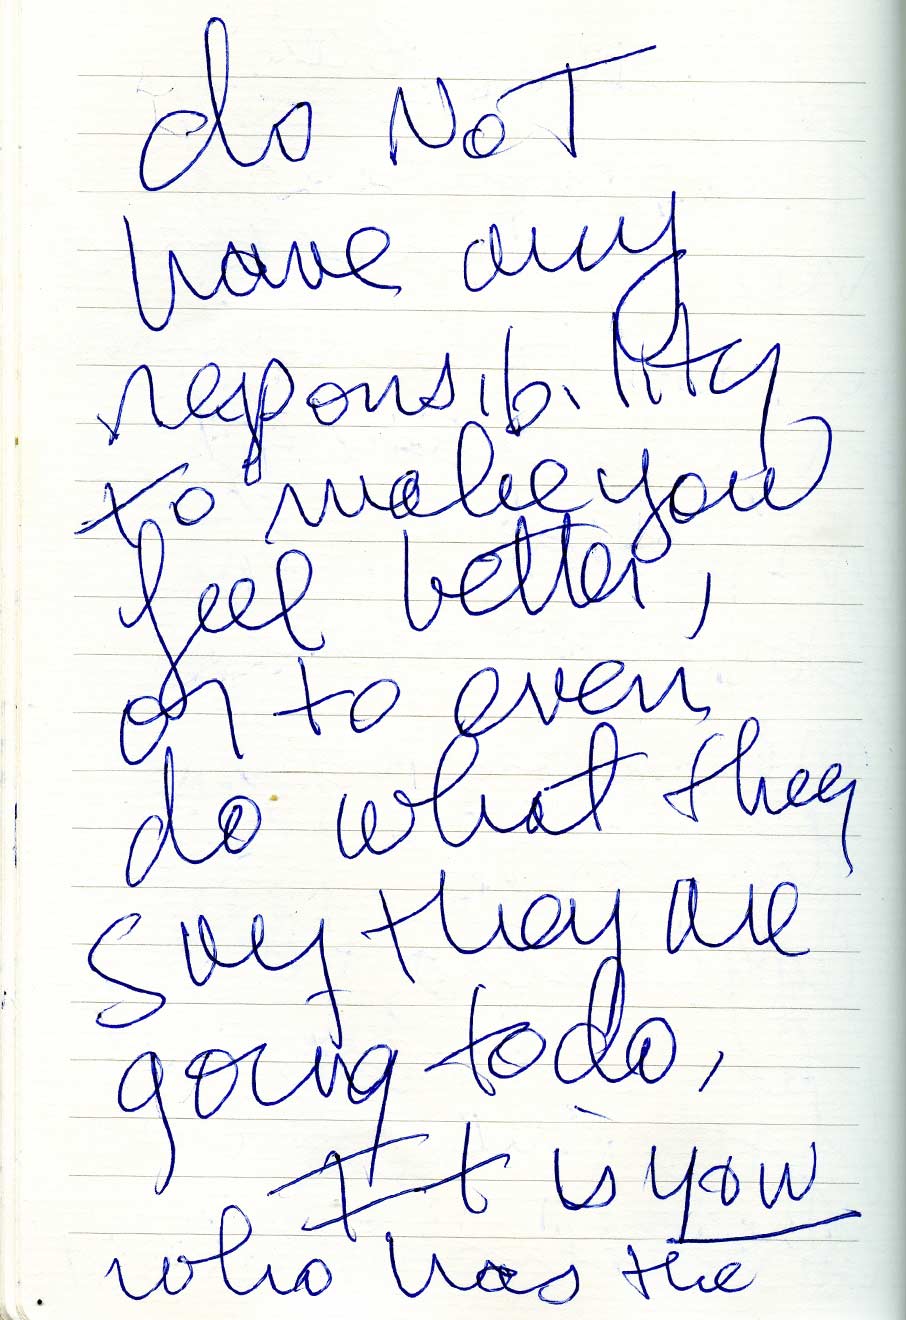 do NOT
have any
responsibility
to make you
feel better,
or to even
do what they
say they are
going to do,
It is you
who has the